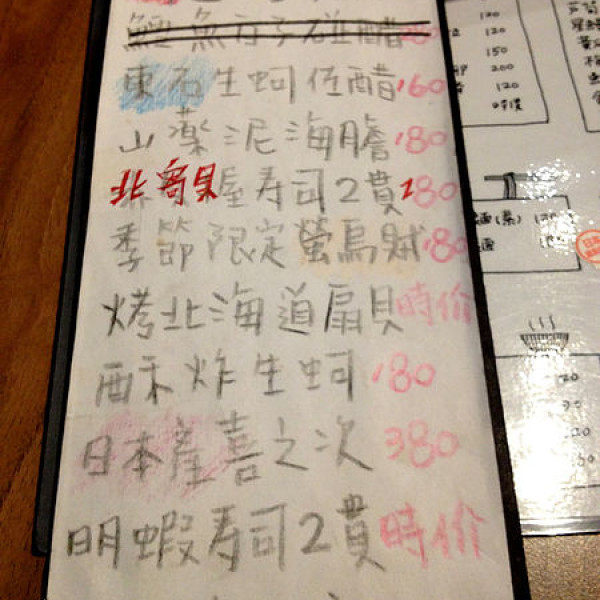 鱈魚白子碰醋
東石生蚵佐醋 160
山藥泥海膽 180
北寄貝握寿司2貫 180
季節限定螢烏賊 180
烤北海道扇貝 時价
酥炸生蚵 180
日本產喜之次 380
明蝦寿司2貫 時价
120
120
150
200
120
時價
(素) 120